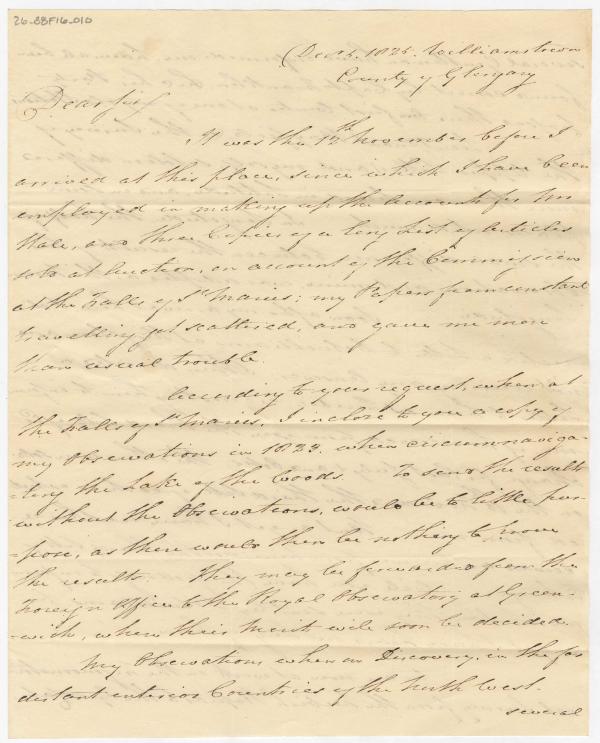 26-88F16-010
Dec 16. 1825. Williamstown
County of Glengary
Dear Sir
It was the 12th November before I
arrived at this place, since which I have been
employed in making up the Accounts for Mr
Hale, and three Copies of a long List of Articles
sold at Auction, on account of the Commission
at the Falls of St Maries; my Papers from constant
travelling got scattered, and gave me more
than usual trouble.
According to your request, when at
the Falls of St Maries, I inclose to you a copy of
my Observations in 1823. when circumnaviga-
-ting the Lake of the Woods. To send the results
without the Observations, would be to little pur-
-pose, as there would then be nothing to prove
the results. They may be forwarded from the
Foreign Office to the Royal Observatory at Green-
-wich, where their Merit will soon be decided.
My Observations when on Discovery, in the far
distant interior Countries of the North West.
several